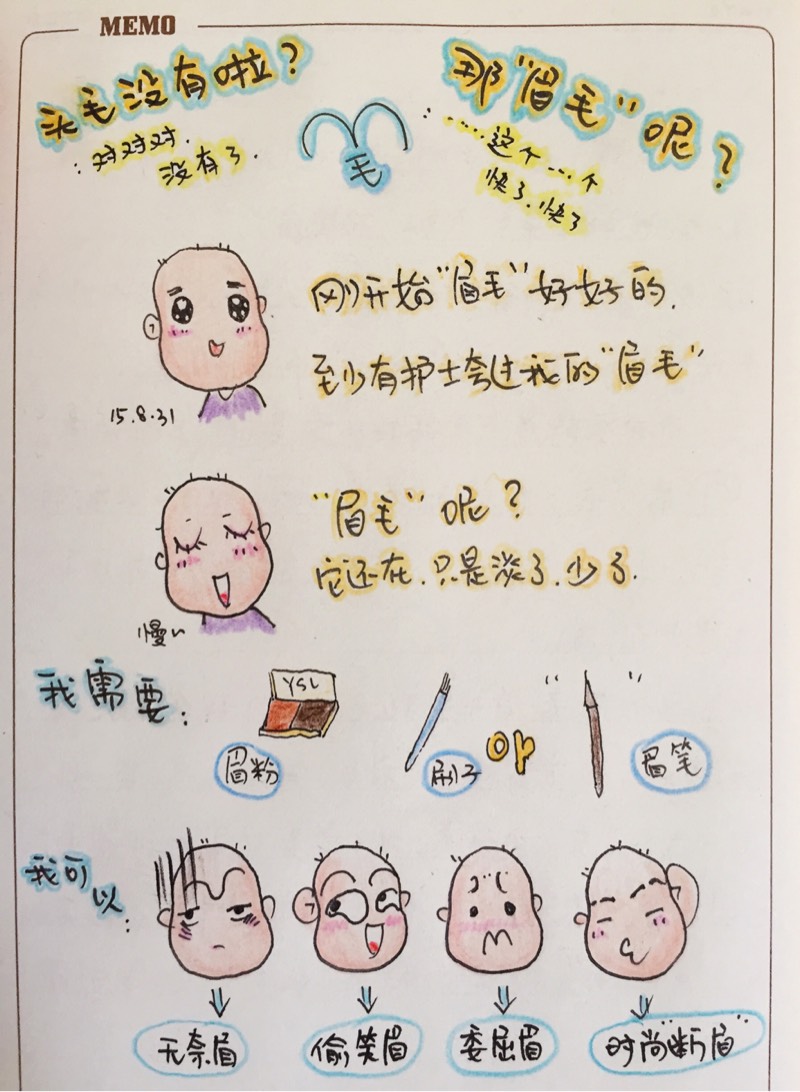 MEMO
头毛没有啦？
：对对对.
没有了.
毛
那"眉毛"呢？
：……这个…个
快了.快了
刚开始"眉毛"好好的.
至少有护士夸过我的"眉毛"
15.8.31
"眉毛"呢？
它还在.只是淡了.少了.
慢～
我需要：
YSL
眉粉
刷子
or
" "
眉笔
我可以：
无奈眉
偷笑眉
委屈眉
时尚"断眉"